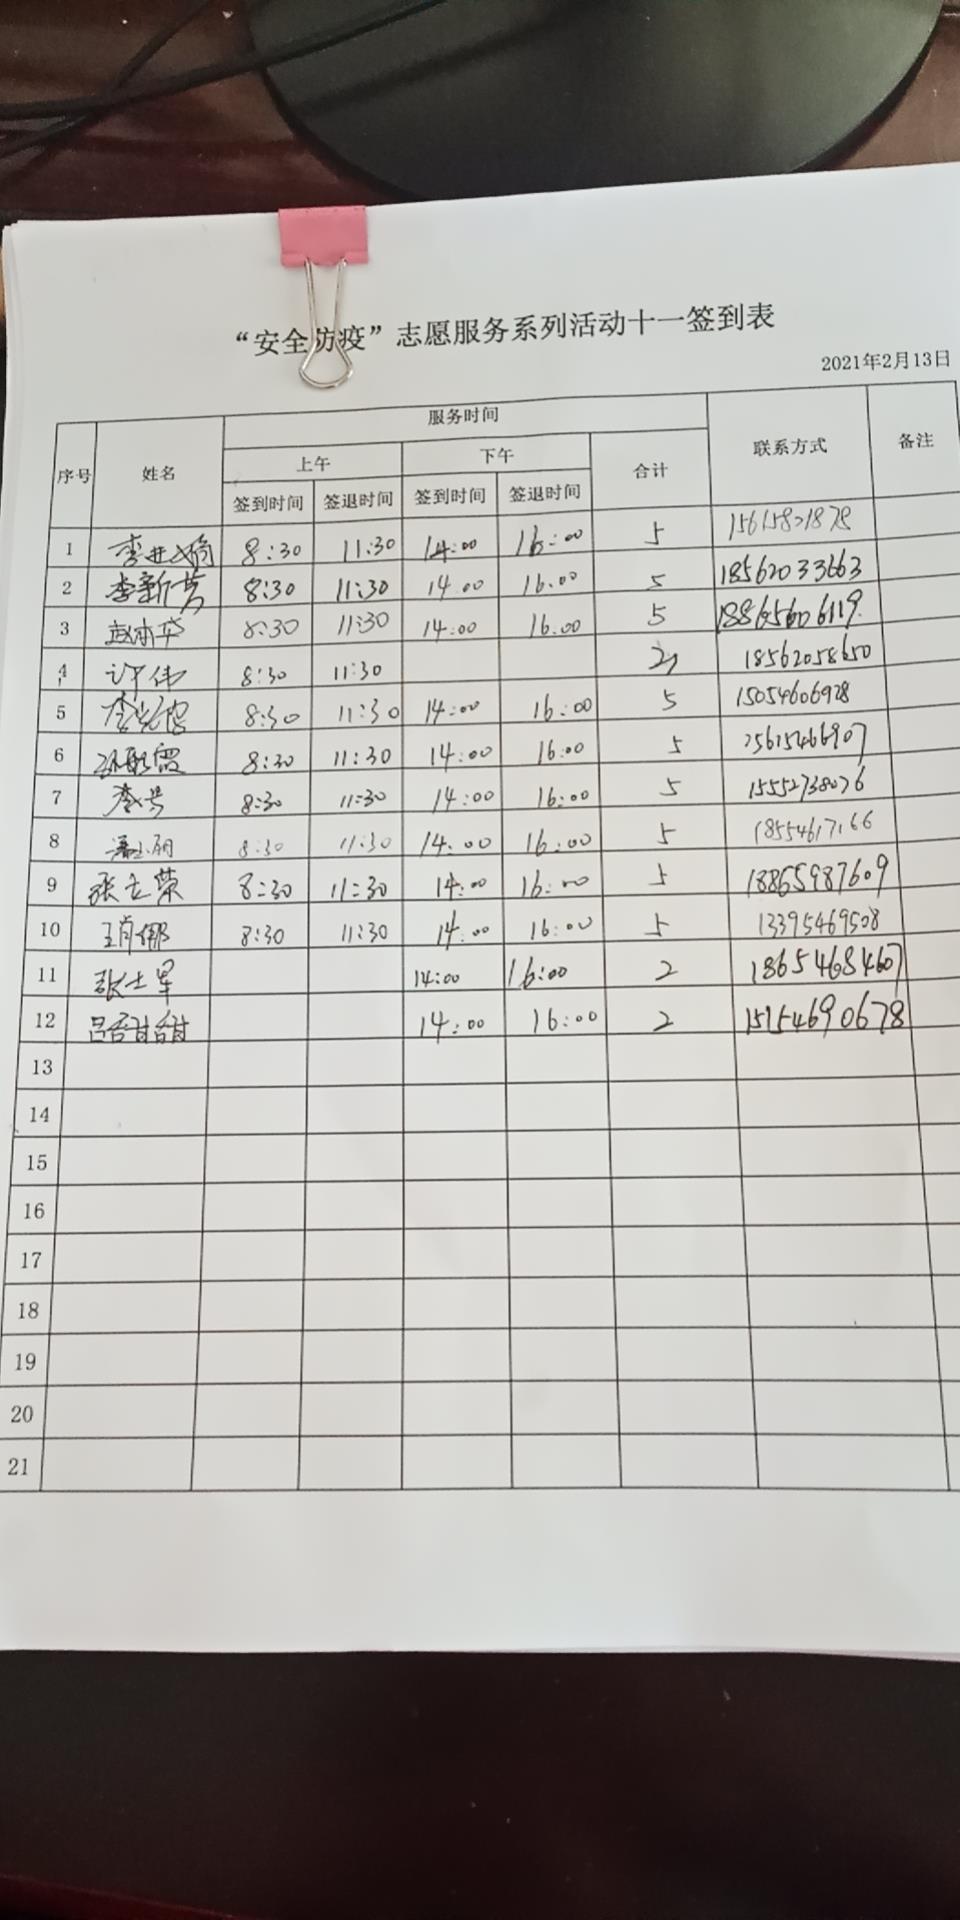 “安全防疫”志愿服务系列活动十一签到表
2021年2月13日
序号 姓名 服务时间 联系方式 备注
上午 下午 合计
签到时间 签退时间 签到时间 签退时间
1 8:30 11:30 14:00 16:00 5
2 李新芳 8:30 11:30 14:00 16:00 5 18562033663
3 8:30 11:30 14:00 16:00 5 18865606119
4 许伟 8:30 11:30 18562058650
5 8:30 11:30 14:00 16:00 5 15054606928
6 8:30 11:30 14:00 16:00 5
7 8:30 11:30 14:00 16:00 5 15552738026
8 8:30 11:30 14:00 16:00 5 18554617166
9 8:30 11:30 14:00 16:00 5 18865987609
10 肖娜 8:30 11:30 14:00 16:00 5 13395469508
11 张士军 14:00 16:00 2 18654684607
12 吕甜甜 14:00 16:00 2 15154690678
13
14
15
16
17
18
19
20
21